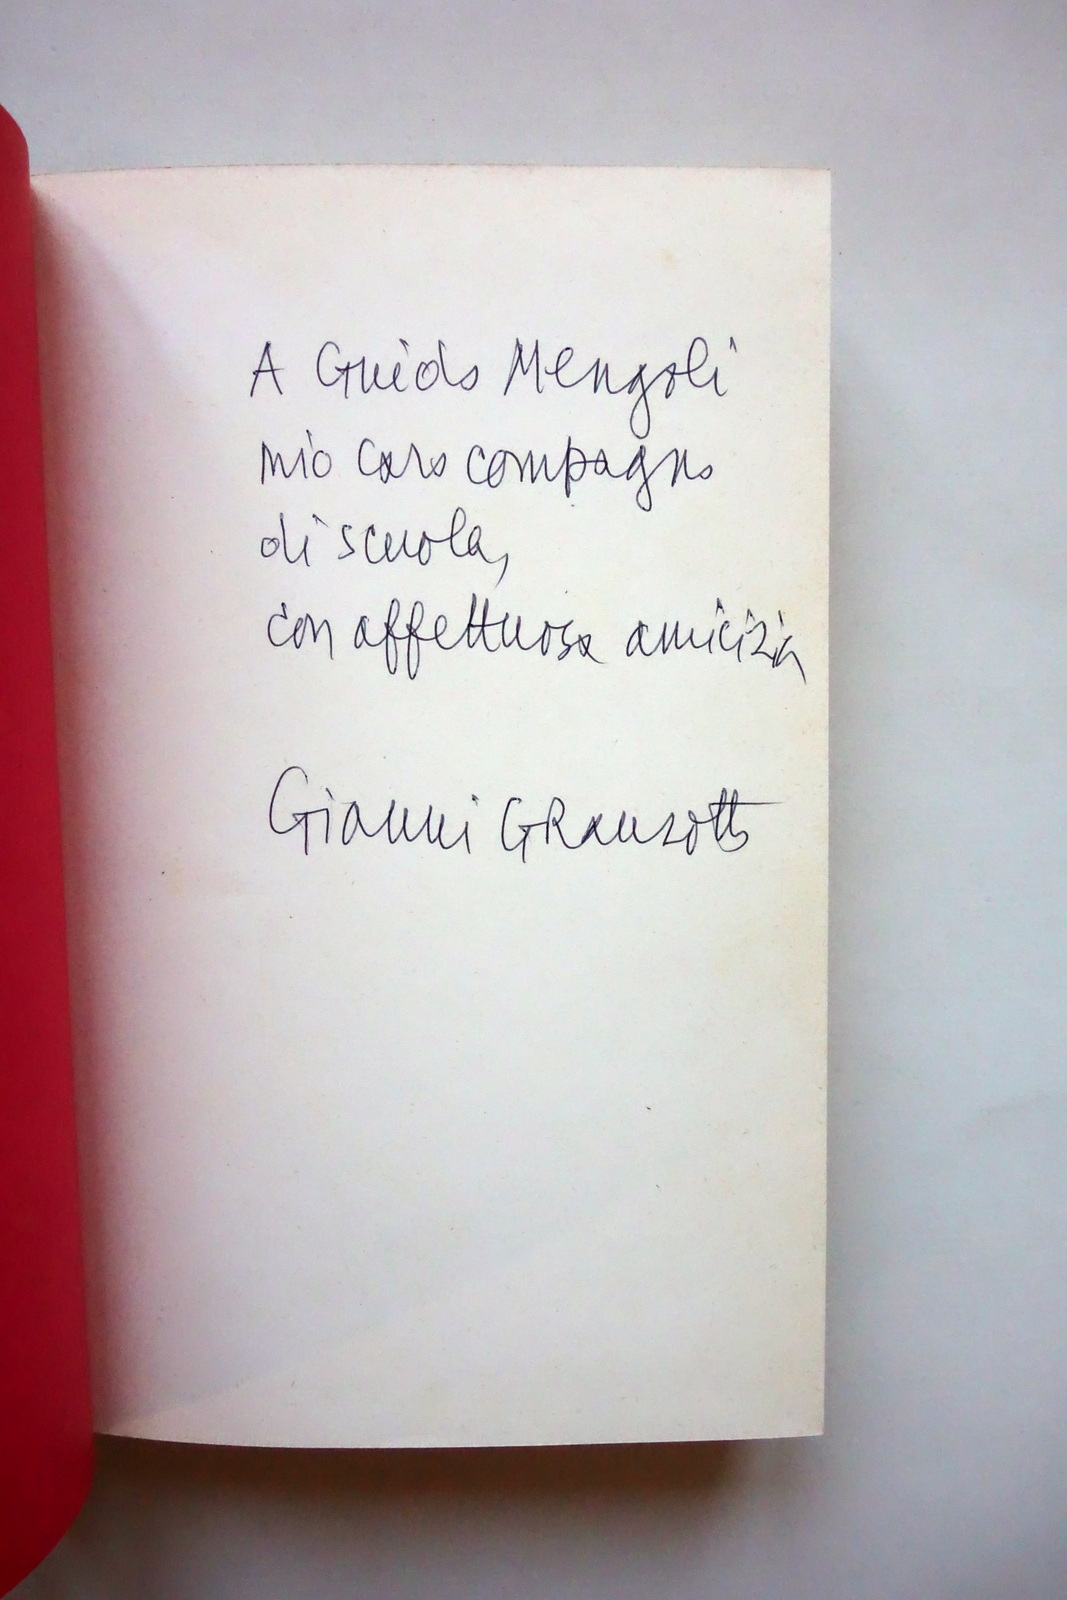 A Guido Mengoli
mio caro compagno
di scuola,
con affettuosa amicizia
Gianni Granzotto